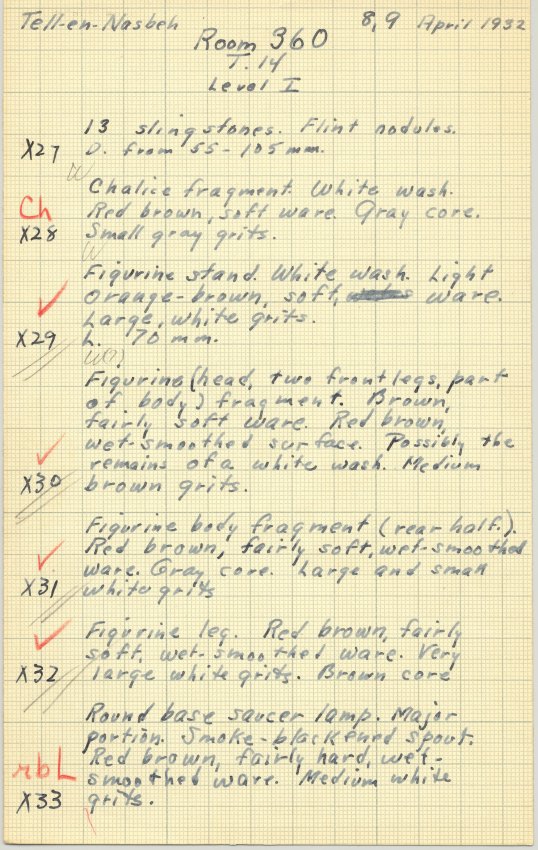 Tell-en-Nasbeh
8, 9 April 1932
Room 360
T. 14
Level I
13 slingstones. Flint nodules.
X27 D. from 55-105 mm.
W
Chalice fragment. White wash.
Ch Red brown, soft ware. Gray core.
X28 Small gray grits.
W
Figurine stand. White wash. Light
orange-brown, soft, ware.
Large, white grits.
X29 L. 70 mm.
W(?)
Figurine (head, two front legs, part
of body) fragment. Brown,
fairly soft ware. Red brown,
wet-smoothed surface. Possibly the
remains of a white wash. Medium
X30 brown grits.
Figurine body fragment (rear half.).
Red brown, fairly soft, wet-smoothed
ware. Gray core. Large and small
X31 white grits
Figurine leg. Red brown, fairly
soft, wet-smoothed ware. Very
X32 large white grits. Brown core
Round base saucer lamp. Major
portion. Smoke-blackened spout.
rbL Red brown, fairly hard, wet-
smoothed ware. Medium white
X33 grits.